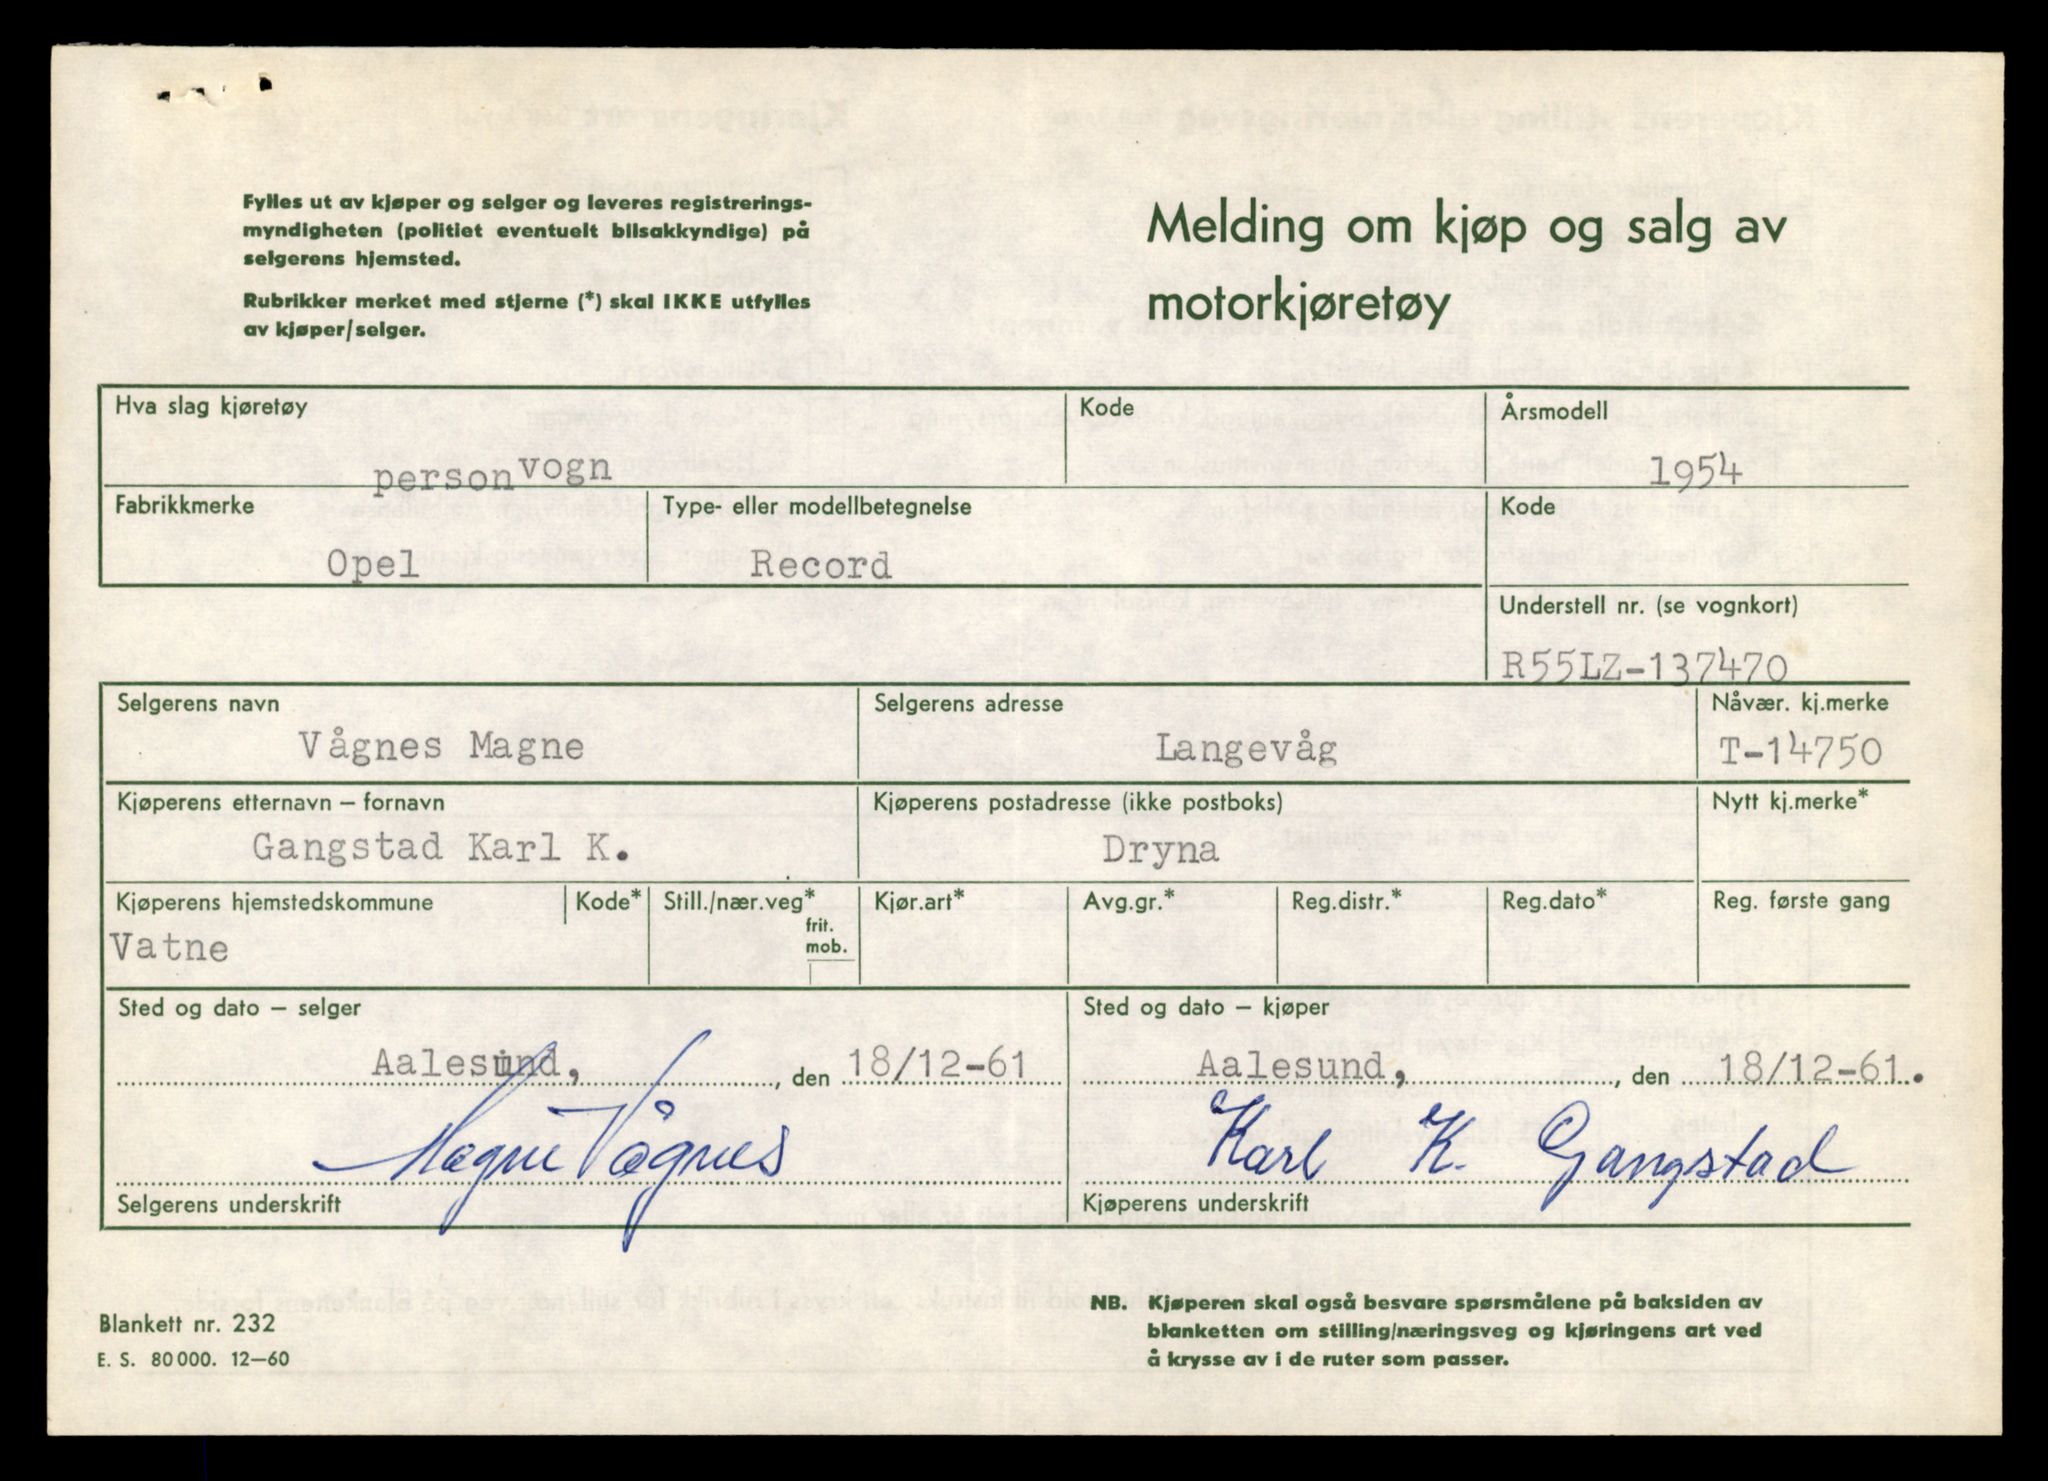 Fylles ut av kjøper og selger og leveres registrerings-
myndigheten (politiet eventuelt bilsakkyndige) på
selgerens hjemsted.
Rubrikker merket med stjerne (*) skal IKKE utfylles
av kjøper/selger.
Melding om kjøp og salg av
motorkjøretøy
Hva slag kjøretøy
personvogn
Kode
Årsmodell
1954
Fabrikkmerke
Opel
Type- eller modellbetegnelse
Record
Kode
Understell nr. (se vognkort)
R55LZ-137470
Selgerens navn
Vågnes Magne
Selgerens adresse
Langevåg
Nåvær. kj.merke
T-14750
Kjøperens etternavn – fornavn
Gangstad Karl K.
Kjøperens postadresse (ikke postboks)
Dryna
Nytt kj.merke*
Kjøperens hjemstedskommune
Vatne
Kode*
Still./nær.veg*
frit.
mob.
Kjør.art*
Avg.gr.*
Reg.distr.*
Reg.dato*
Reg. første gang
Sted og dato – selger
Aalesund, , den 18/12-61
Magne Vågnes
Selgerens underskrift
Sted og dato – kjøper
Aalesund, , den 18/12-61.
Karl K. Gangstad
Kjøperens underskrift
Blankett nr. 232
E. S. 80 000. 12–60
NB. Kjøperen skal også besvare spørsmålene på baksiden av
blanketten om stilling/næringsveg og kjøringens art ved
å krysse av i de ruter som passer.